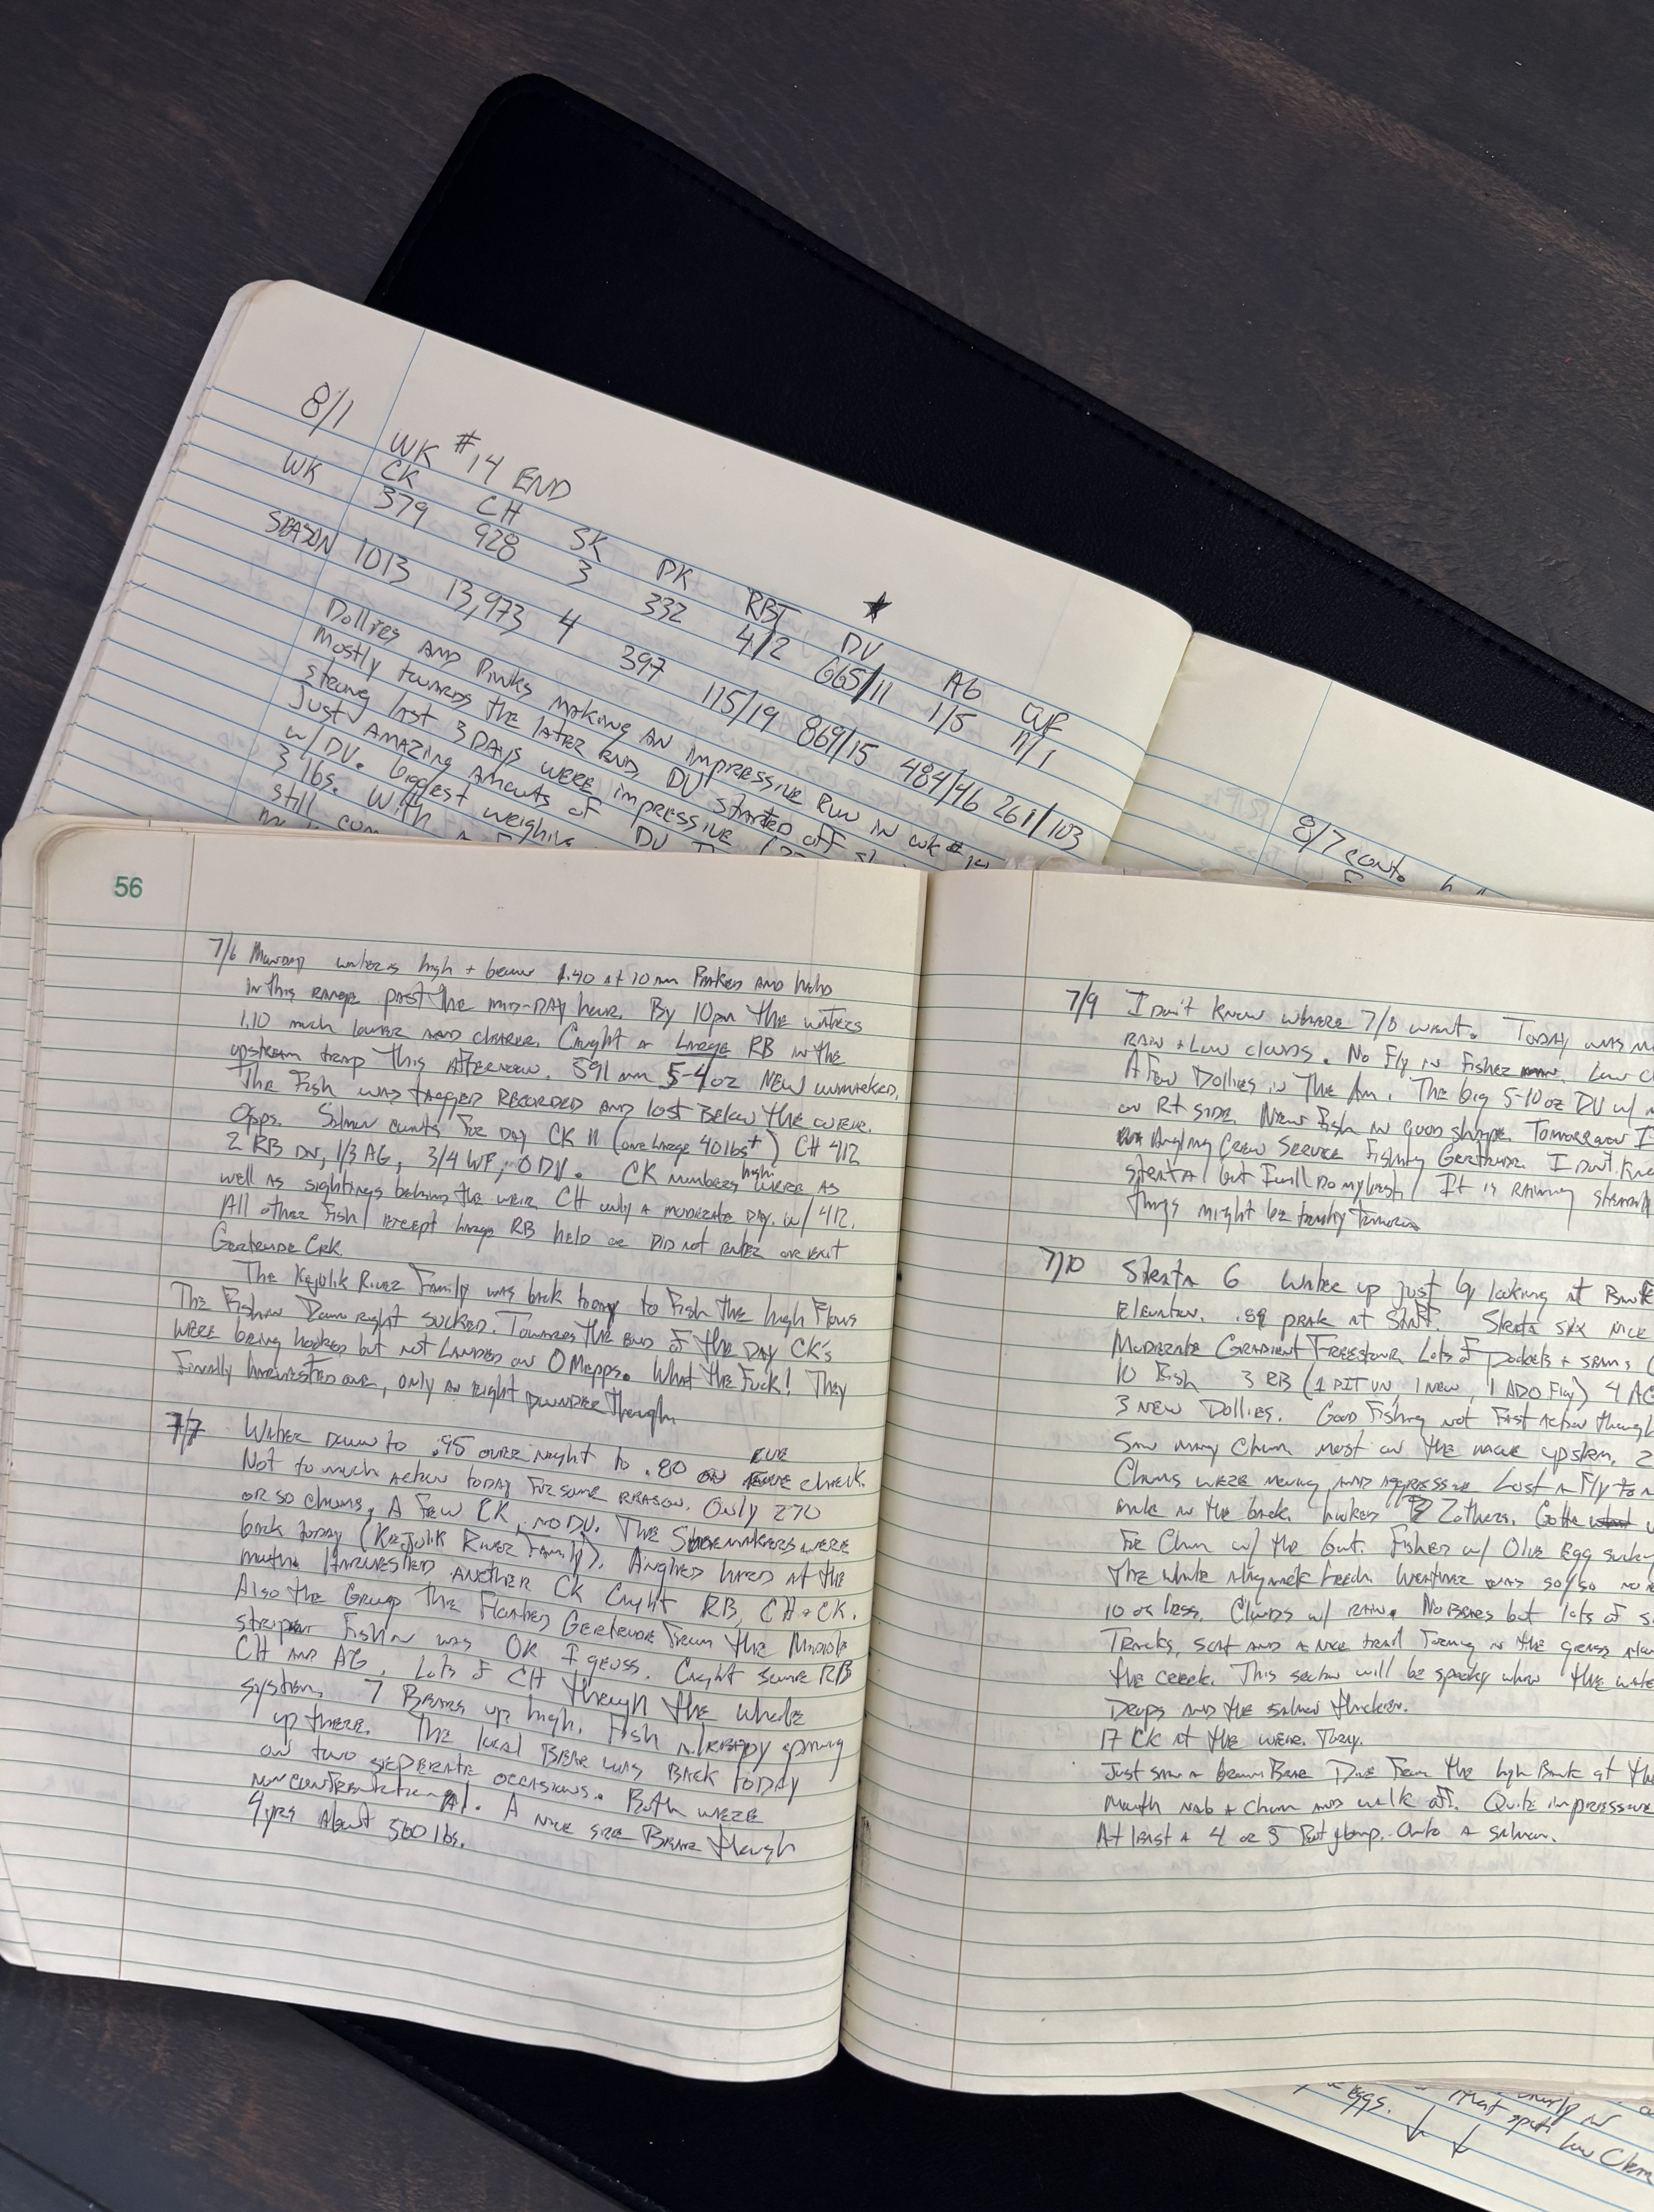 8/1
WK #14 END
WK CK CH SK PK RBT DV AG WF
379 928 3 332 4/2 665/11 1/5 11/1
SEASON 1013 13,973 4 397 115/19 869/15 484/46 261/103
Dollies AND Pinks making AN impressive Run in wk # 14
mostly towards the later end DV started off
strong last 3 DAYS were impressive
Just AMAZING Amounts of DV
w/ DV. biggest weighing
3 lbs. With
still
8/7 cont.
56
7/6 Monday water is high + brown 1.40 at 10 am Peaked AND held
in this range past the mid-DAY hour. By 10pm the waters
1.10 much lower AND clearer. Caught a Large RB in the
upstream trap This Afternoon. 591 mm 5-4oz NEW unmarked.
The Fish was tagged RECORDED AND lost Below the weir.
Opps. Salmon counts for day CK 11 (one large 40 lbs+) CH 412
2 RB DN, 1/3 AG, 3/4 WF, 0 DV. CK numbers high were as
well as sightings behind the weir CH only a moderate day. w/ 412.
All other Fish except large RB held or Did not enter or exit
Gertrude Crk
The Kejulik River Family was back today to Fish the high Flows
The Fishin Down right sucked. Towards the end of the DAY CK's
were being hooked but not Landed on 0 Mepps. What the Fuck! They
Finally harvested one, only an eight pounder Though
7/7 Water Down to .95 over night to .80 on EVE check.
Not to much action today for some reason. Only 270
or so chums, A few CK, no DV. The Shoemakers were
back today (Kejulik River Family). Angled hard at the
mouth. Harvested another CK Caught RB, CH + CK.
Also the Group The Floated Gertrude From the Middle
strip Fishin was OK I geuss. Caught some RB
CH AND AG. Lots of CH through the whole
system, 7 Bears up high. Fish Already spawning
up there. The local Bear was Back today
on two seperate occasions. Both were
non confrontational. A nice size Bear though
4 yrs About 500 lbs.
7/9 I Don't Know where 7/8 went. Today was
RAIN + Low clouds. No Fly in Fisher Low
A Few Dollies in The Am. The big 5-10oz DV w/
on Rt side. New Fish in good shape. Tomorrow I
Angling Crew Service Fishing Gertrude. I Don't Know
strata 6 but I will Do my best. It is RAINING steadily
things might be tomorrow
7/10 Strata 6 Water up just by looking at Bank
Elevation. .89 peak at Start. Strata six nice
Moderate Gradient Freestone Lots of pockets + seams
10 Fish 3 RB (1 PIT UN, 1 NEW, 1 ADO Fly) 4 AG
3 NEW Dollies. Good Fishing not Fast Action though
Saw many Chum most on the move upstrm. 2
Chums were moving AND Aggressive Lost a Fly to a
male in the back. hooked 2 others. Gotta
For Chum w/ the Gut. Fished w/ Olive Egg sucking
The whole Weather was so/so
10 or less. Clouds w/ RAIN. No Bears but lots of
Tracks, scat AND a nice trail Forming in the grass
the creek. This section will be spooky when the water
Drops AND the salmon thicken.
17 CK at the weir. Today.
Just saw a brown Bear Dive From the high Bank at the
Mouth nab a Chum AND walk off. Quite impressive
At least a 4 or 5 Foot jump. Onto a salmon.
eggs.
that spot
low